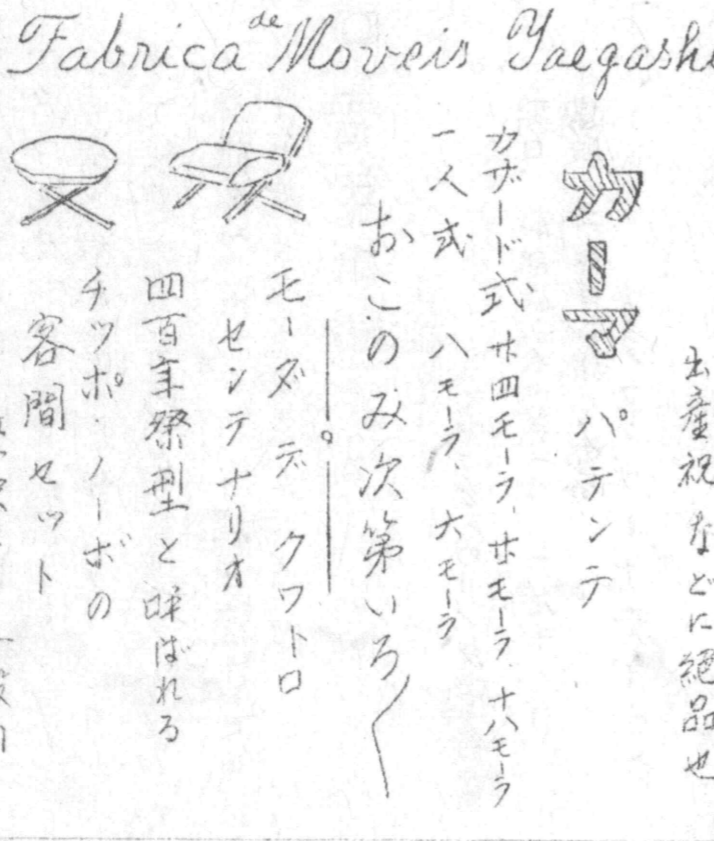 Fabrica de Moveis Yaegashi
出産祝などに絶品也
カーマ パテンテ
カザード式 廿四モーラ、廿モーラ、十八モーラ
一人式 八モーラ、六モーラ
おこのみ次第いろ〱
モーダ デ クワトロ
センテナリオ
四百年祭型と呼ばれる
チッポ・ノーボの
客間セット